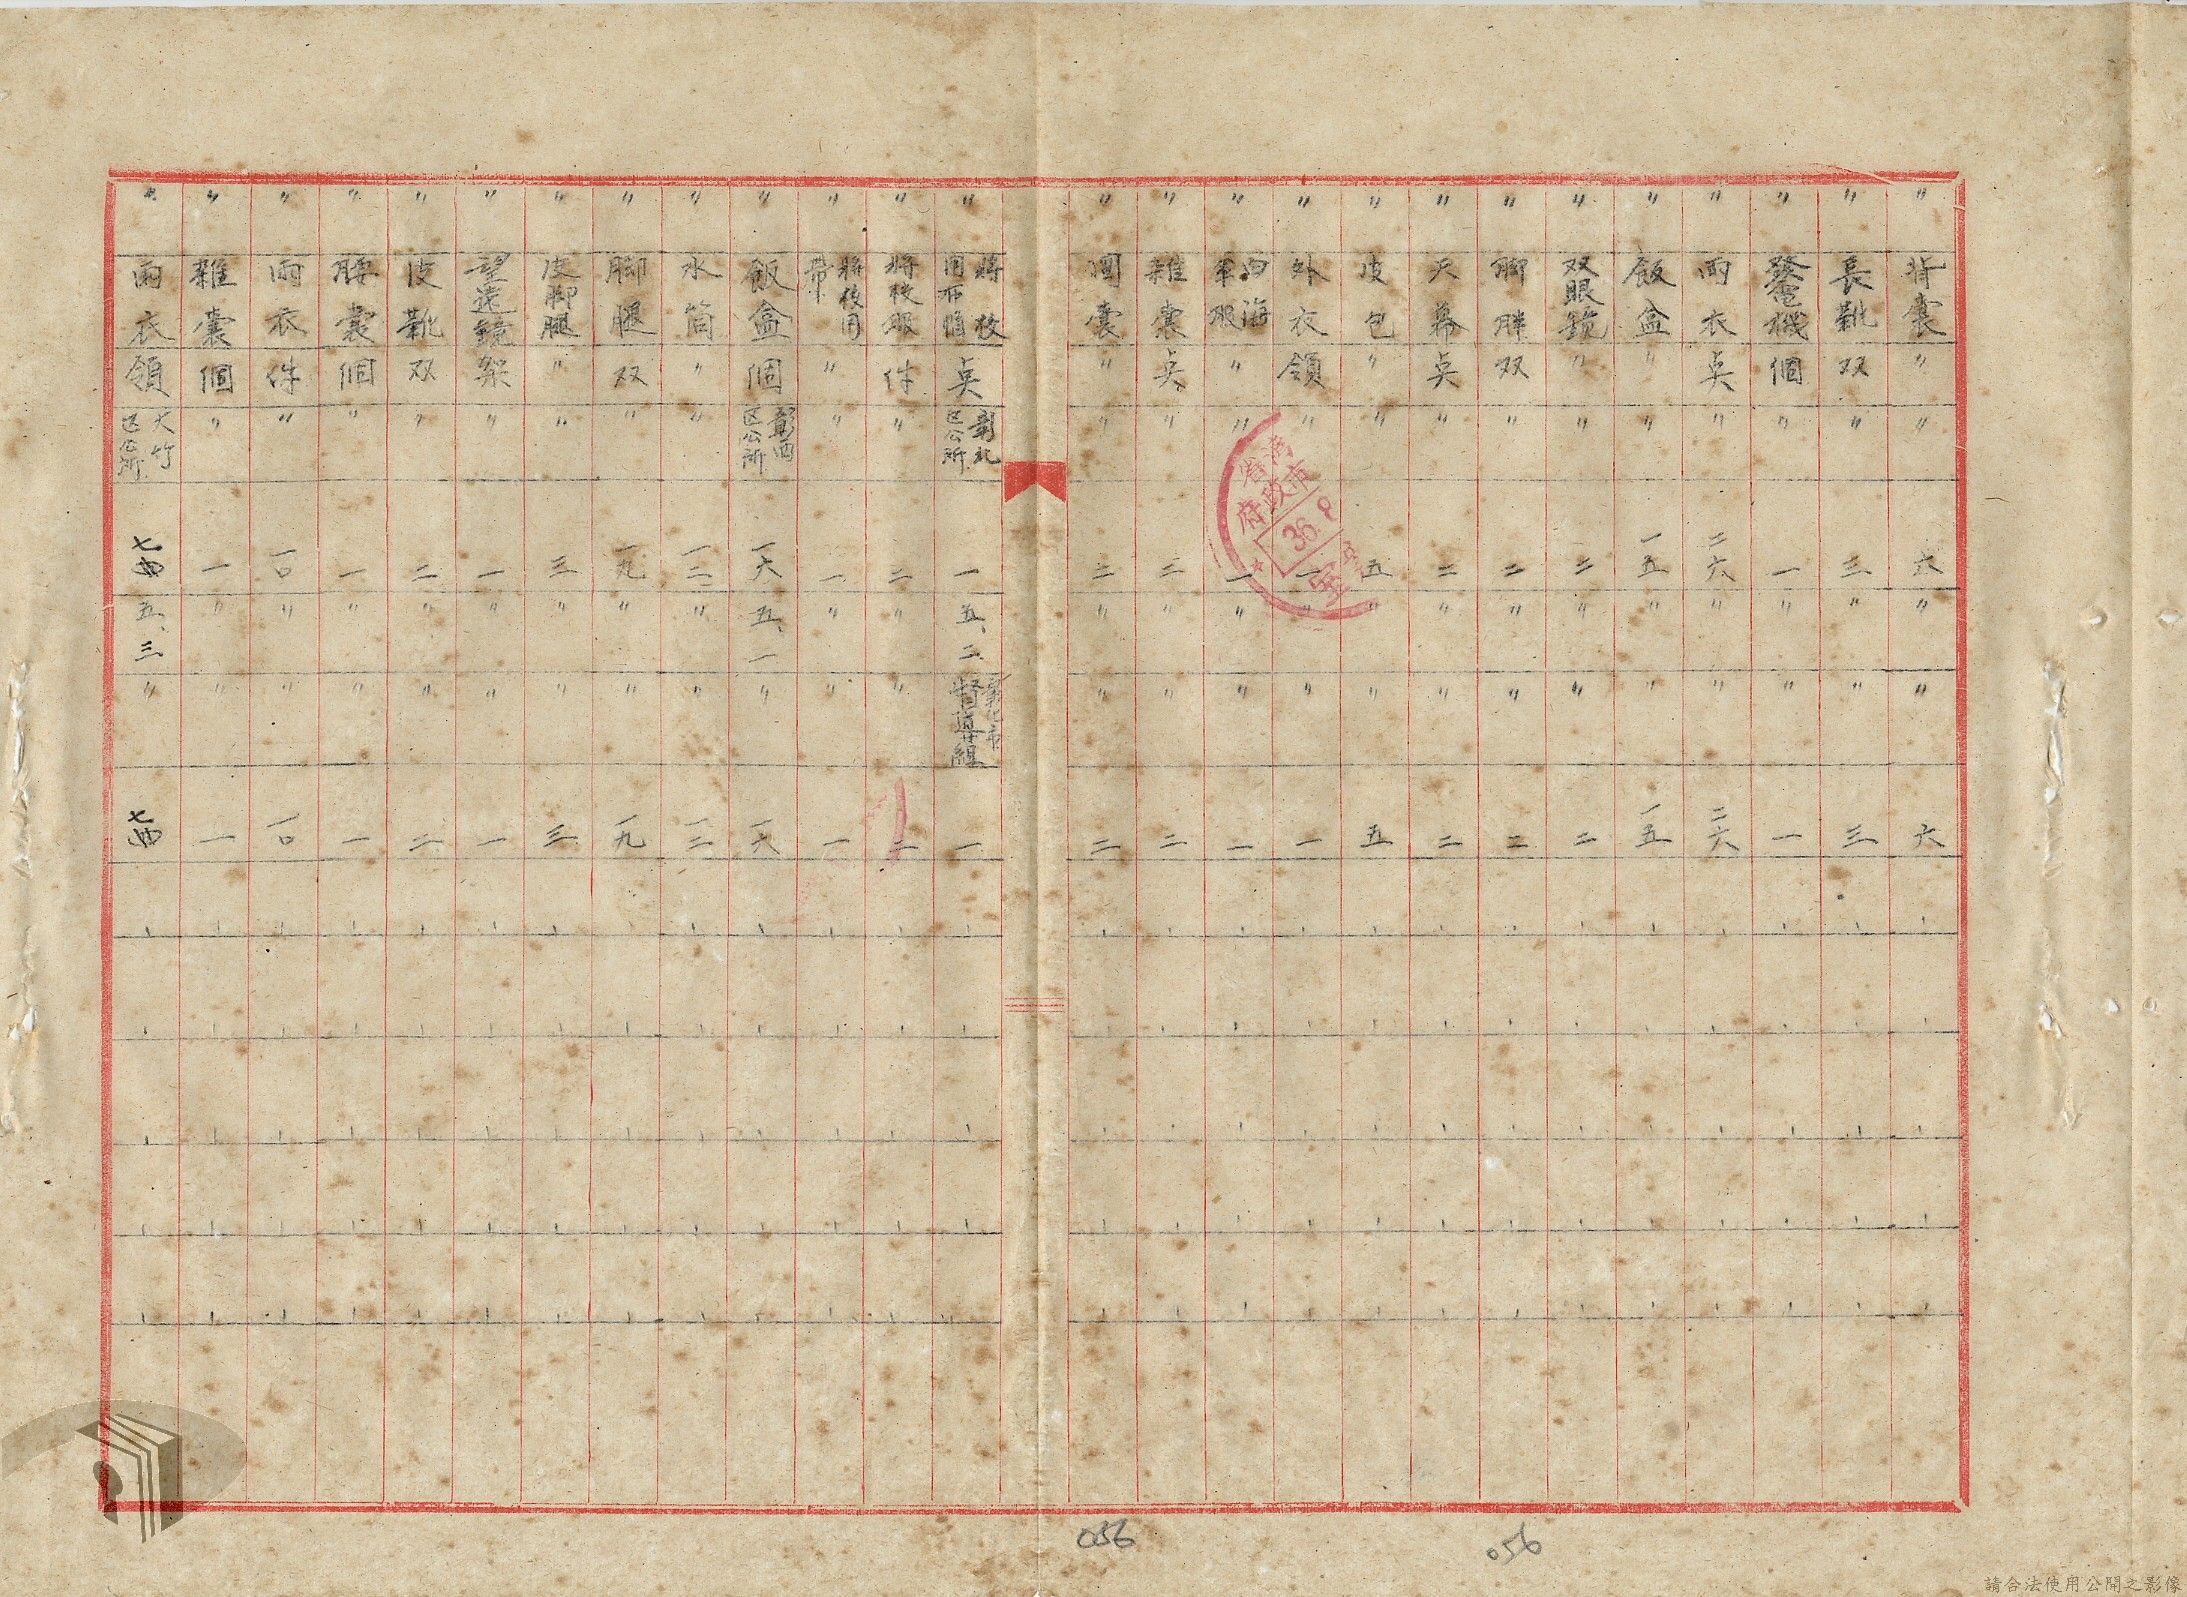 〃 背囊 〃 〃 六 〃 〃 六
〃 長靴 双 〃 三 〃 〃 三
〃 發電機 個 〃 一 〃 〃 一
〃 雨衣 点 〃 二六 〃 〃 二六
〃 飯盒 〃 〃 一五 〃 〃 一五
〃 双眼鏡 〃 〃 二 〃 〃 二
〃 脚胖 双 〃 二 〃 〃 二
〃 天幕 点 〃 二 〃 〃 二
〃 皮包 〃 〃 五 〃 〃 五
〃 外衣 領 〃 一 〃 〃 一
〃 白海軍服 〃 〃 一 〃 〃 一
〃 雜囊 点 〃 二 〃 〃 二
〃 圖囊 〃 〃 二 〃 〃 二
〃 將校用布帽 点 彰北区公所 一 五、二 彰化市督導組 一
〃 將校服 件 〃 二 〃 〃 二
〃 將校用帶 〃 〃 一 〃 〃 一
〃 飯盒 個 彰西区公所 一六 五、一 〃 一六
〃 水筒 〃 〃 一三 〃 〃 一三
〃 脚腿 双 〃 一九 〃 〃 一九
〃 皮脚腿 〃 〃 三 〃 〃 三
〃 望遠鏡 架 〃 一 〃 〃 一
〃 皮靴 双 〃 二 〃 〃 二
〃 腰囊 個 〃 一 〃 〃 一
〃 雨衣 件 〃 一〇 〃 〃 一〇
〃 雜囊 個 〃 一 〃 〃 一
〃 雨衣 領 大竹区公所 七 五、三 〃 七
灣省
市政府
36. 9
室
056
056
請合法使用公開之影像